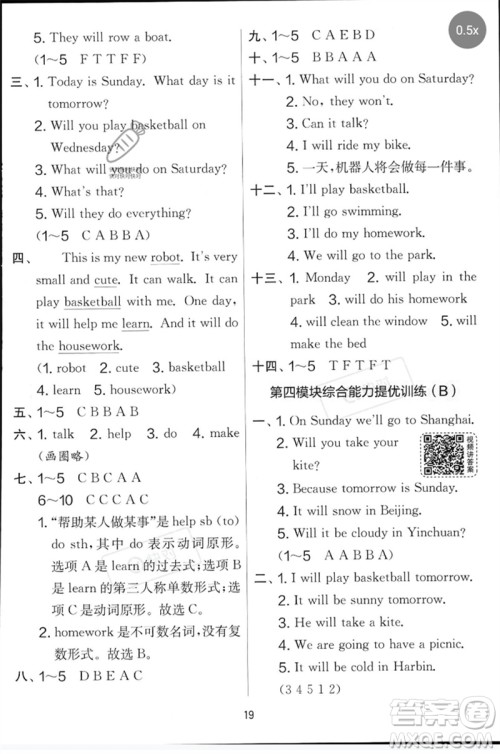 5. They will row a boat.
(1~5 F T T F F)
三、1. Today is Sunday. What day is it
tomorrow?
2. Will you play basketball on
Wednesday?
3. What will you do on Saturday?
4. What's that?
5. Will they do everything?
(1~5 C A B B A)
四、 This is my new robot. It's very
small and cute. It can walk. It can
play basketball with me. One day,
it will help me learn. And it will
do the housework.
(1. robot 2. cute 3. basketball
4. learn 5. housework)
五、1~5 C B B A B
六、1. talk 2. help 3. do 4. make
(画图略)
七、1~5 C B C A A
6~10 C C C A B
1. “帮助某人做某事”是 help sb (to)
do sth，其中 do 表示动词原形。
选项 A 是 learn 的过去式；选项 B
是 learn 的第三人称单数形式；选
项 C 是动词原形。故选 C。
2. homework 是不可数名词，没有复
数形式。故选 C。
八、1~5 D B E A C
九、1~5 C A E B D
十、1~5 B B A A A
十一、1. What will you do on Saturday?
2. No, they won't.
3. Can it talk?
4. I will ride my bike.
5. 一天，机器人将会做每一件事。
十二、1. I'll play basketball.
2. I'll go swimming.
3. I'll go to the park.
4. I'll go to the park.
十三、1. Monday 2. will play in the
park 3. will do my homework
4. will clean the window 5. will
make the bed
十四、1~5 T F T F T
第四模块综合能力提优训练(B)
一、1. On Sunday we'll go to Shanghai.
2. Will you take your
kite?
视频讲答案
3. Because tomorrow is Sunday.
4. It will snow in Beijing.
5. Will it be cloudy in Yinchuan?
(1~5 A A B B A)
二、1. I will play basketball tomorrow.
2. It will be sunny tomorrow.
3. We will take a kite.
4. We are going to have a picnic.
5. It will be cold in Harbin.
(3 4 5 1 2)
19
0.5x
答案圈
MXQE.COM